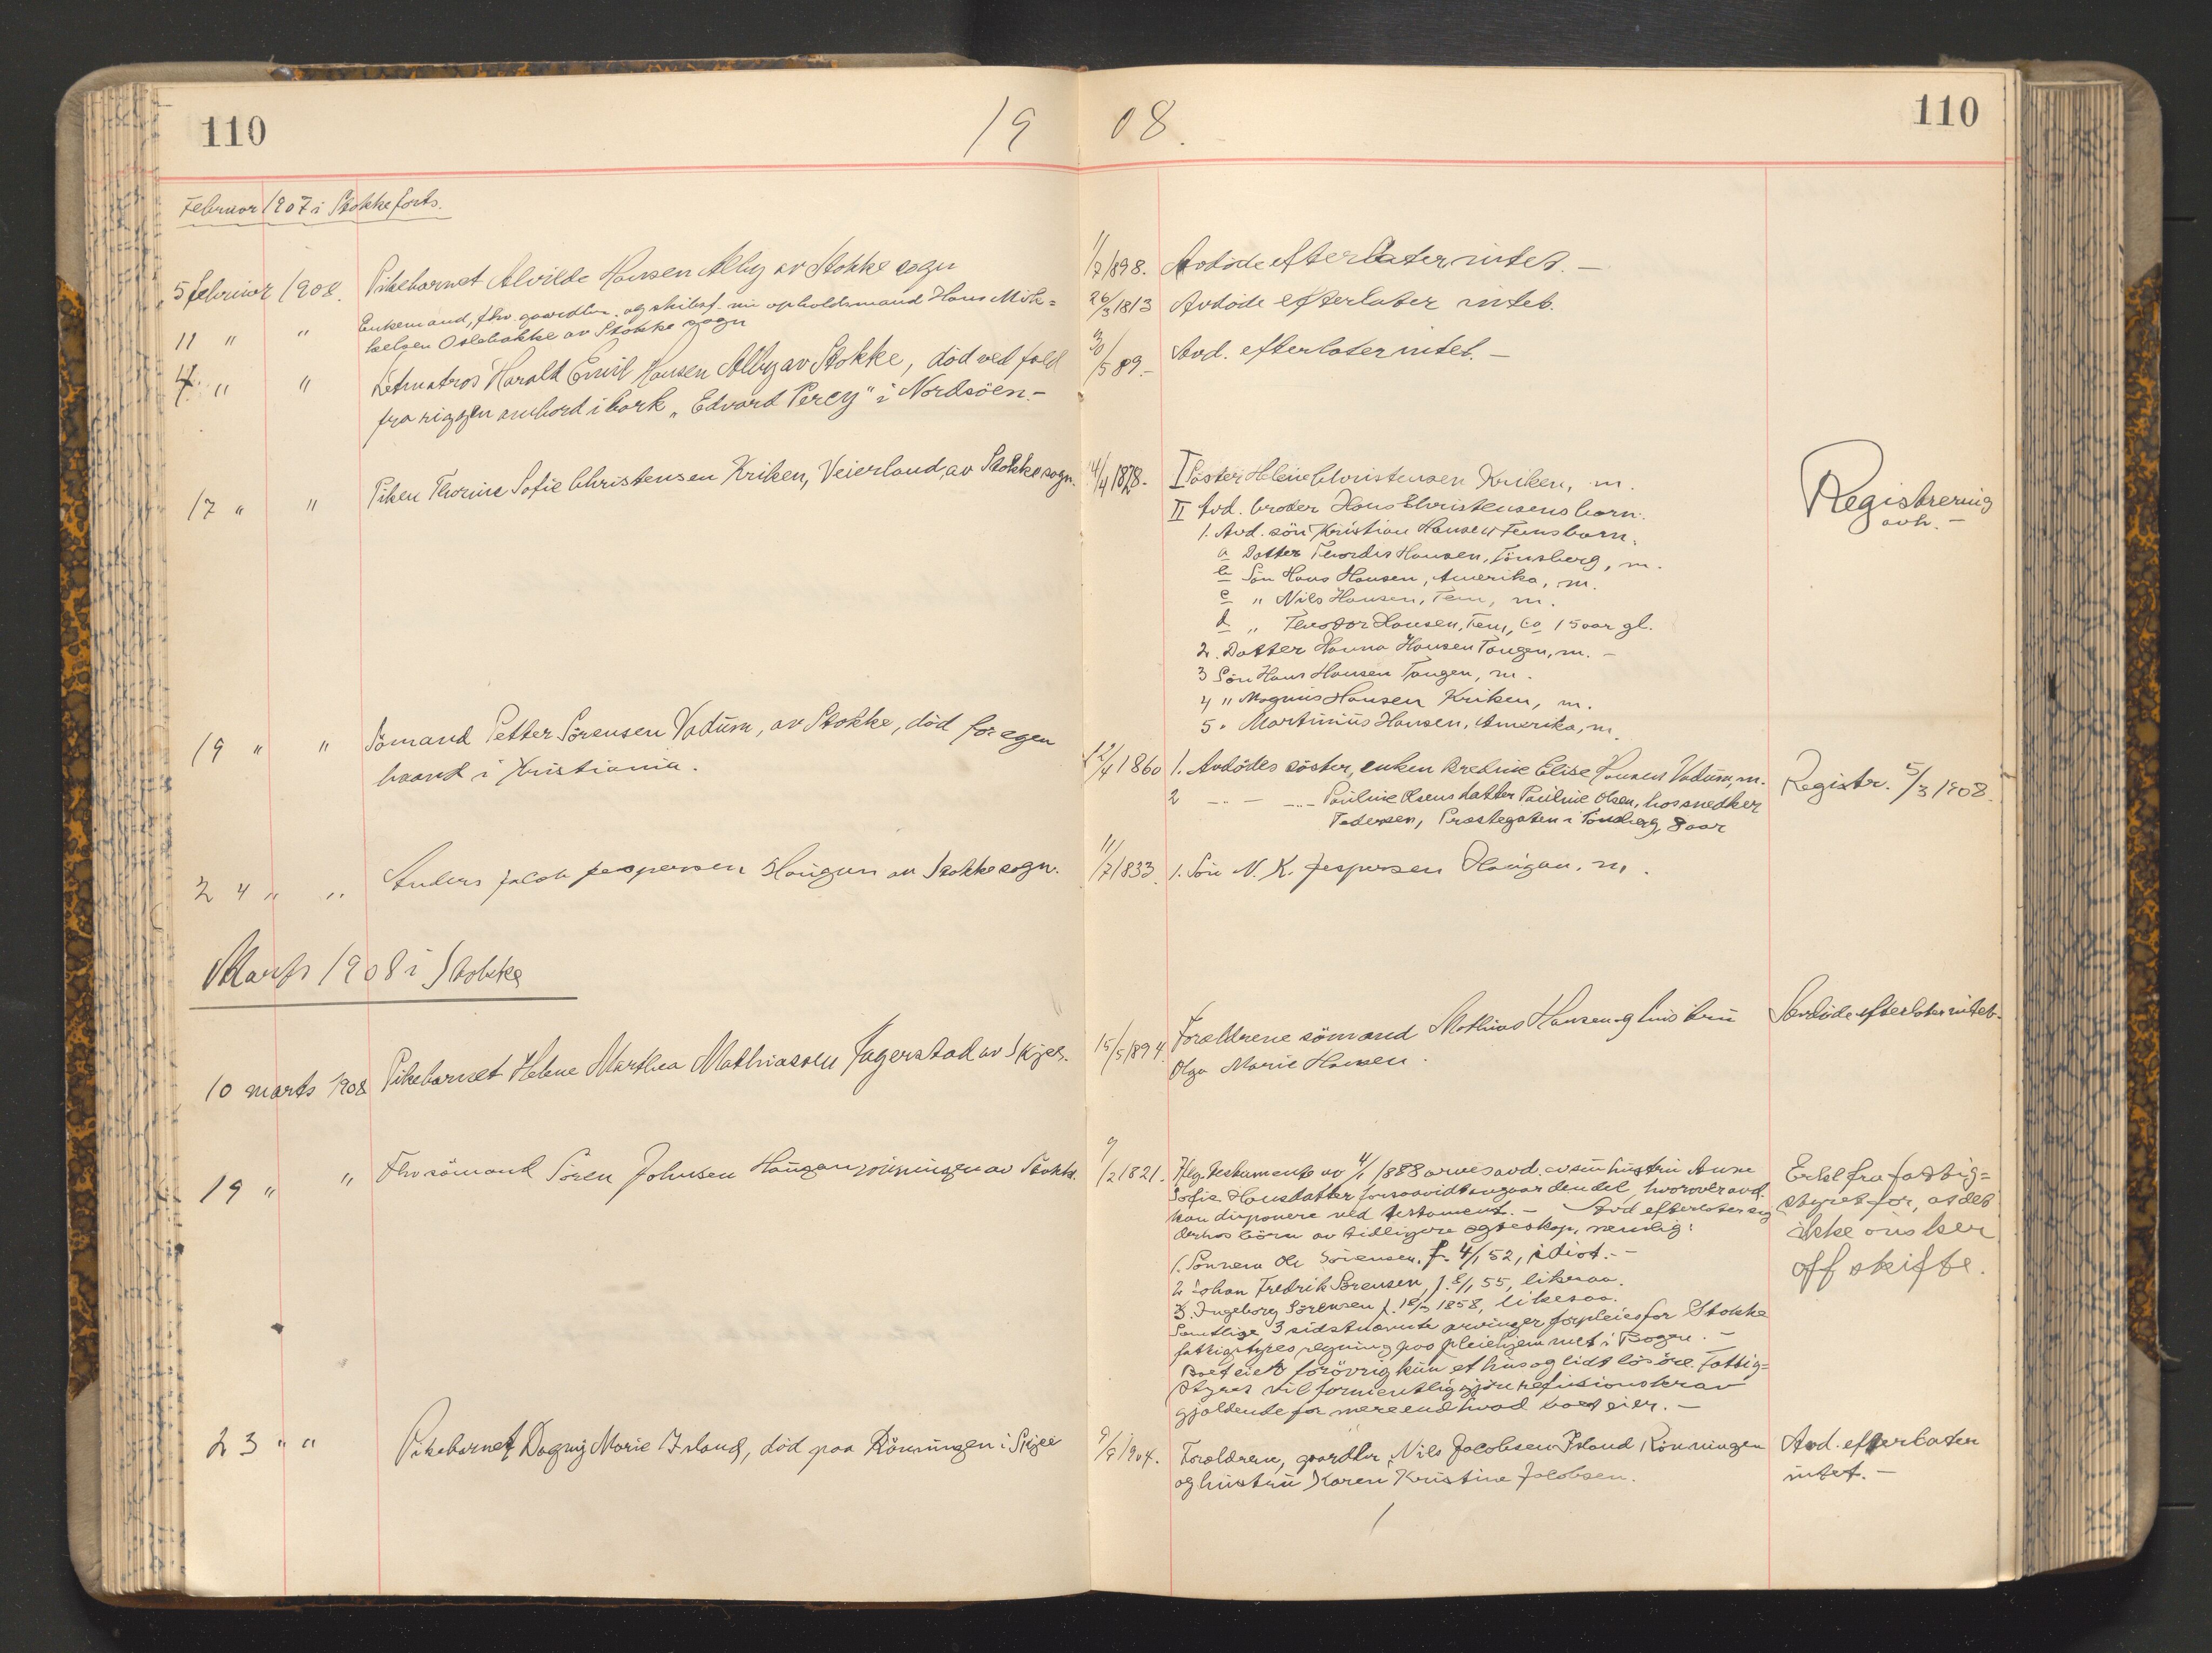 110
19 08.
110
Februar 1907 i Stokke forts.
5 februar 1908. Pikebarnet Alvilde Hansen Alby av Stokke sogn
11/7 1898. Avdöde efterlater intet. -
11 " " Enkemand, fhv. gaardbr. og skibsf. nu opholdsmand Hans Mik=
kelsen Oslebakke av Stokke sogn
26/3 1813 Avdöde efterlater intet.
4 " " Letmatros Harald Emil Hansen Alby av Stokke, död ved fald
fra riggen ombord i bark "Edvard Percy" i Nordsöen. -
30/5 89. - Avd. efterlater intet. -
17 " " Piken Thorine Sofie Christensen Kriken, Veierland, av Stokke sogn.
14/4 1828. I Söster Helene Christensen Kriken, m.
II Avd. broder Hans Christensens barn:
1. Avd. sön Kristian Hansen Tems barn:
a Datter Thordis Hansen, Tönsberg, m.
b Sön Hans Hansen, Amerika, m.
c " Nils Hansen, Tem, m.
d " Theodor Hansen, Tem, ca 15 aar gl.
2. Datter Hanna Hansen Tangen, m. -
3 Sön Hans Hansen Tangen, m.
4 " Magnus Hansen Kriken, m.
5 " Martinius Hansen, Amerika, m.
Registrering
avh. -
19 " " Sömand Petter Sörensen Vadum, av Stokke, död for egen
haand i Kristiania.
12/4 1860 1. Avdödes söster, enken Bredine Elise Hansen Vadum, m.
2 - " - - " - Pauline Olsens datter Pauline Olsen, hos snedker
Pedersen, Prestegaten i Tönsberg, 8 aar
Registr. 5/3 1908.
24 " " Anders Jacob Jespersen Haugan av Stokke sogn.
11/7 1833. 1. Sön N. K. Jespersen Haugan, m.
Marts 1908 i Stokke
10 marts 1908 Pikebarnet Helene Marthea Mathiassen Fagerstad av Skjee.
15/5 1894. Forældrene sömand Mathias Hansen og hustru
Olga Marie Hansen.
Avdöde efterlater intet.
19 " " Fhv sömand Sören Johnsen Haugan av Stokke.
9/2 1821. Ifly. testamente av 4/1 1888 arves avd. av sin hustru Anne
Sofie Hansdatter forsaavidt angaar den del, hvorover avd.
kan disponere ved testament. - Avd efterlater sig
derhos börn av tidligere egteskap, nemlig:
1. Sönnen Ole Sörensen, f. 4/1 52, idiot. -
2 Johan Fredrik Sörensen, f. 8/1 55, likesaa.
3. Ingeborg Sörensen f. 18/5 1858, likesaa.
Samtlige 3 sidstnævnte arvinger forpleies for Stokke
fattigstyres regning paa pleiehjemmet i Bogen. -
Boet eier forövrig kun et hus og lidt lösöre. Fattig=
styret vil formentlig gjöre refusionskrav
gjældende for mere end hvad boet eier. -
Erkl fra fattig=
styret for, at det
ikke önsker
off skifte.
23 " " Pikebarnet Dagny Marie Island, död paa Rönningen i Skjee
9/8 1904. Forældrene, gaardbr. Nils Jacobsen Island Rönningen
og hustru Karen Kristine Jacobsen.
Avd. efterlater
intet. -